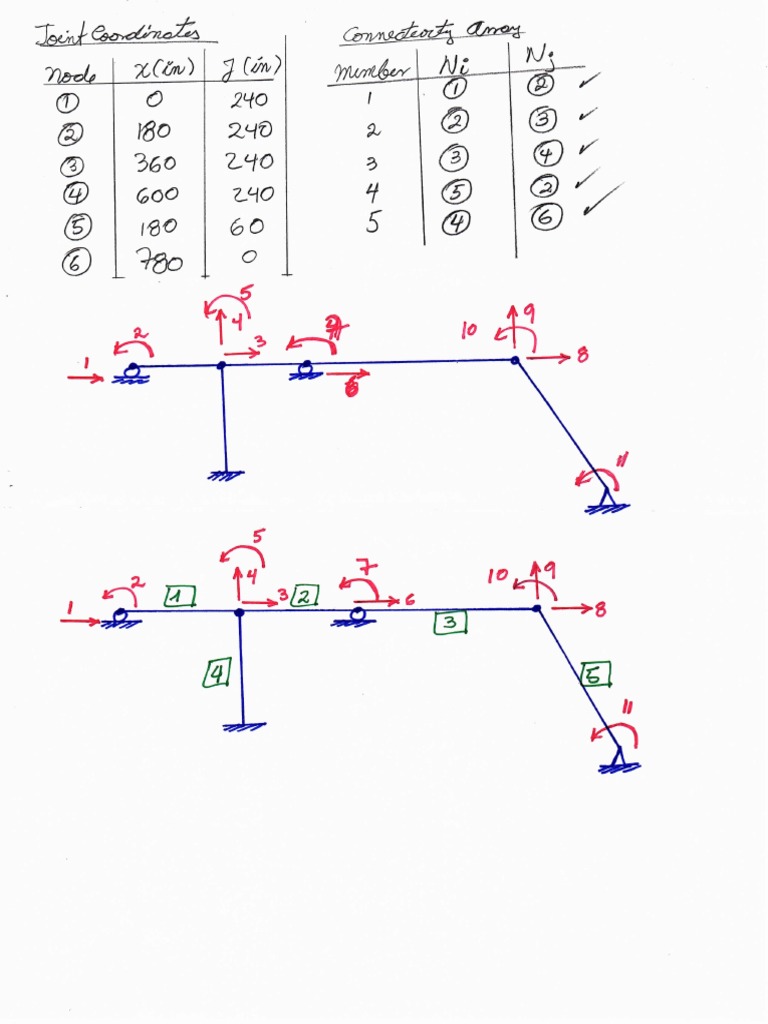 Joint Coordinates
node x(in) y(in)
① 0 240
② 180 240
③ 360 240
④ 600 240
⑤ 180 60
⑥ 780 0
Connectivity array
member Ni Nj
1 ① ② ✓
2 ② ③ ✓
3 ③ ④ ✓
4 ⑤ ② ✓
5 ④ ⑥ ✓
5
2 4 10 9
1 3 8
11
5
2 1 4 7 10 9
1 3 2 6 8
3
4 5
11